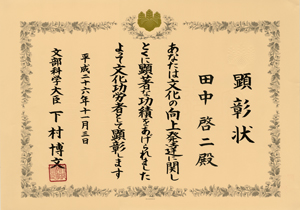 顕彰状
田中啓二殿
あなたは文化の向上発達に関し
とくに顕著な功績をあげられました
よって文化功労者として顕彰します
平成二十六年十一月三日
文部科学大臣 下村博文